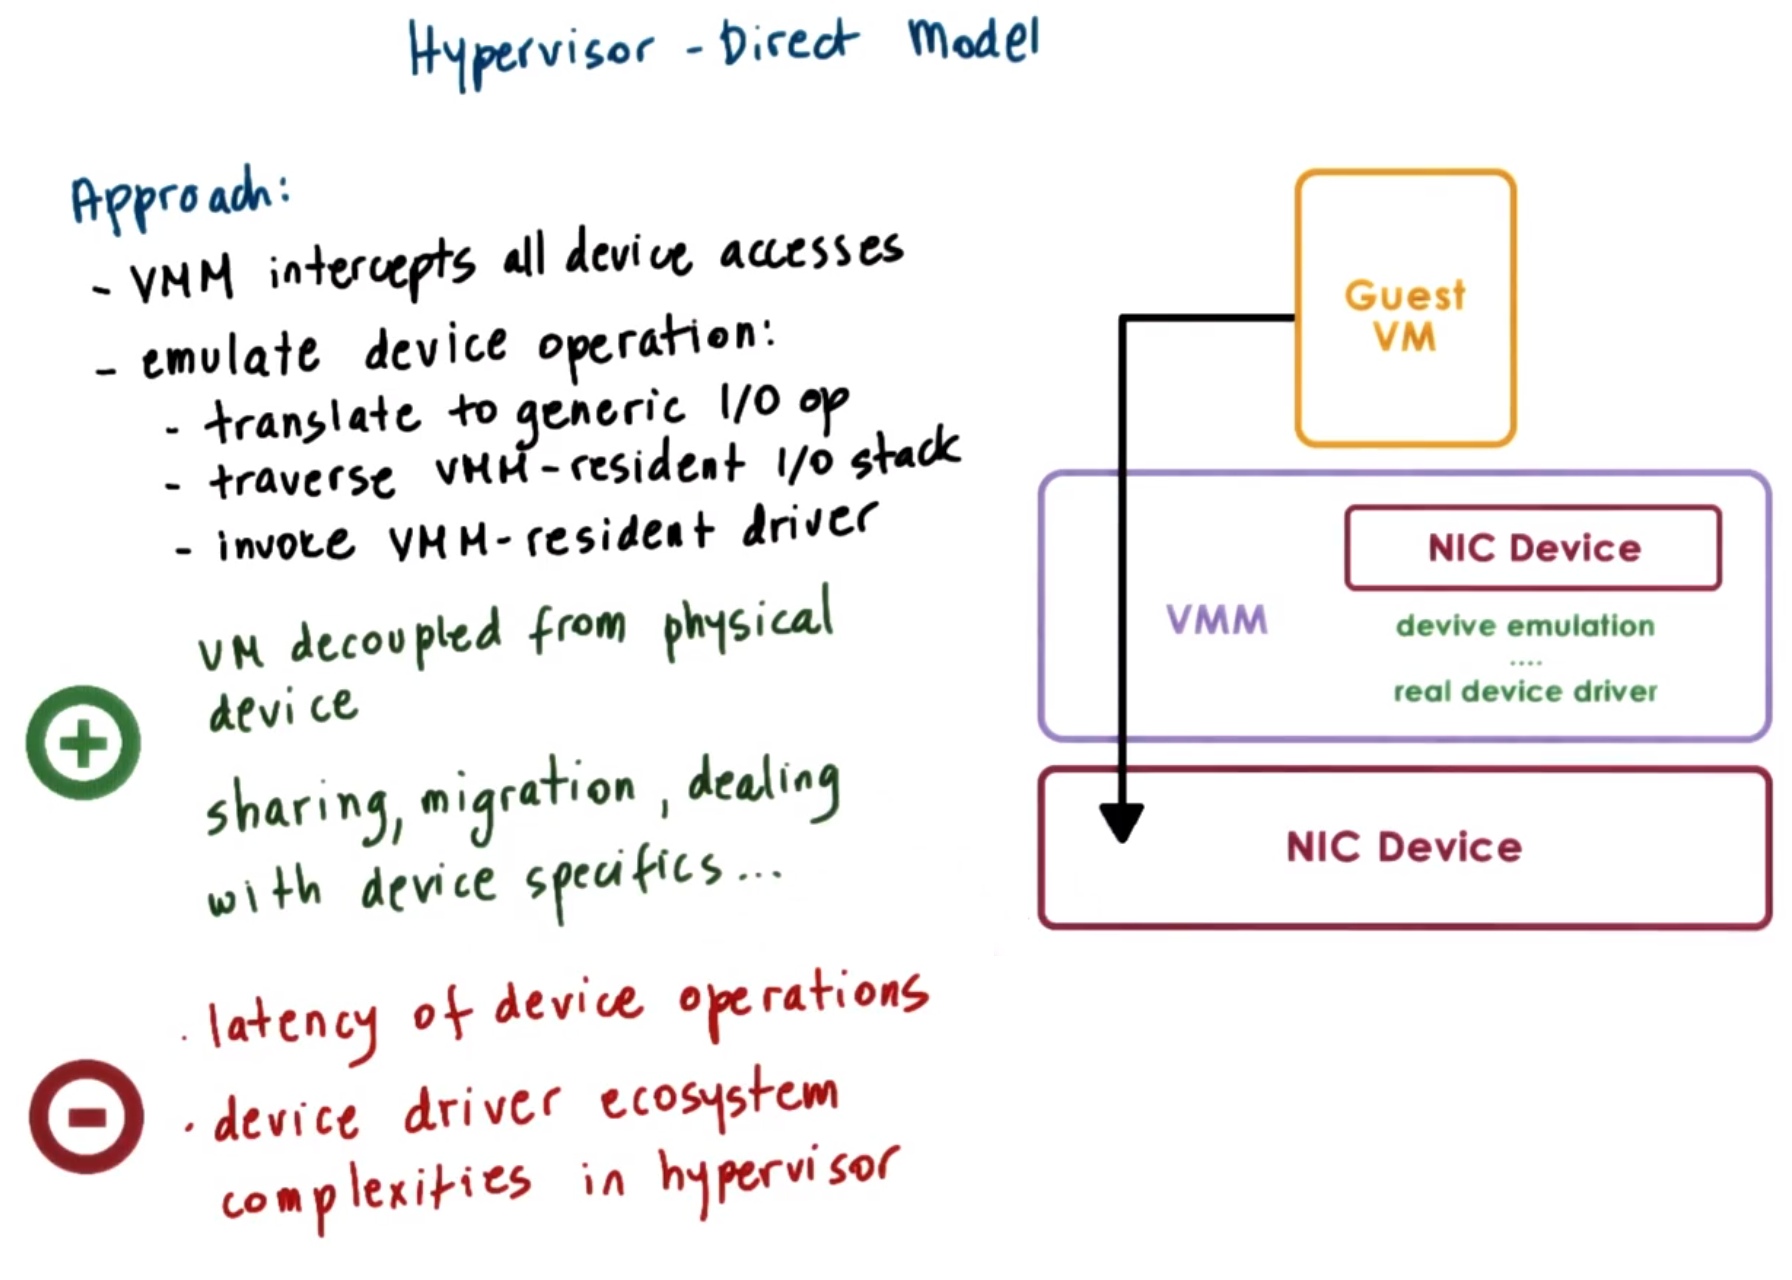 Hypervisor - Direct Model
Approach:
- VMM intercepts all device accesses
- emulate device operation:
- translate to generic I/O op
- traverse VMM-resident I/O stack
- invoke VMM-resident driver
VM decoupled from physical
device
sharing, migration, dealing
with device specifics...
· latency of device operations
· device driver ecosystem
complexities in hypervisor
Guest
VM
NIC Device
VMM
devive emulation
....
real device driver
NIC Device